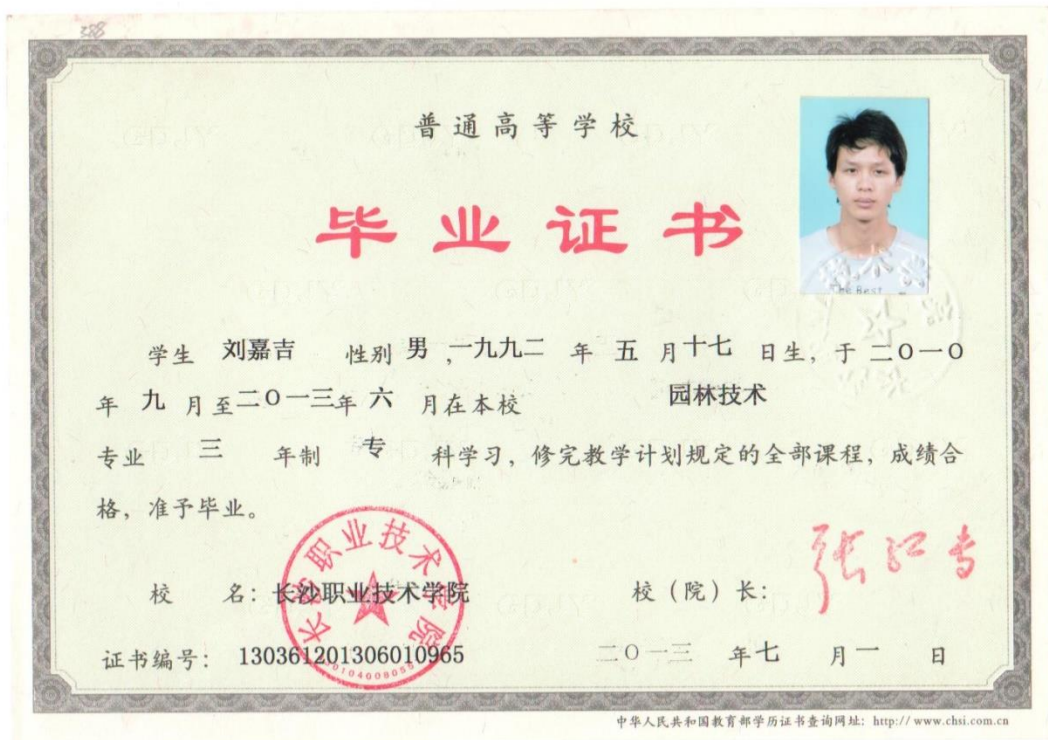 普通高等学校
毕业证书
The Best
学生 刘嘉吉 性别 男 ,一九九二 年 五 月十七 日生，于 二〇一〇
年 九 月至二〇一三年 六 月在本校 园林技术
专业 三 年制 专 科学习，修完教学计划规定的全部课程，成绩合
格，准予毕业。
长沙职业技术学院
校 名：长沙职业技术学院 校（院）长：
证书编号： 130361201306010965 二〇一三 年七 月一 日
中华人民共和国教育部学历证书查询网址：http:// www.chsi.com.cn